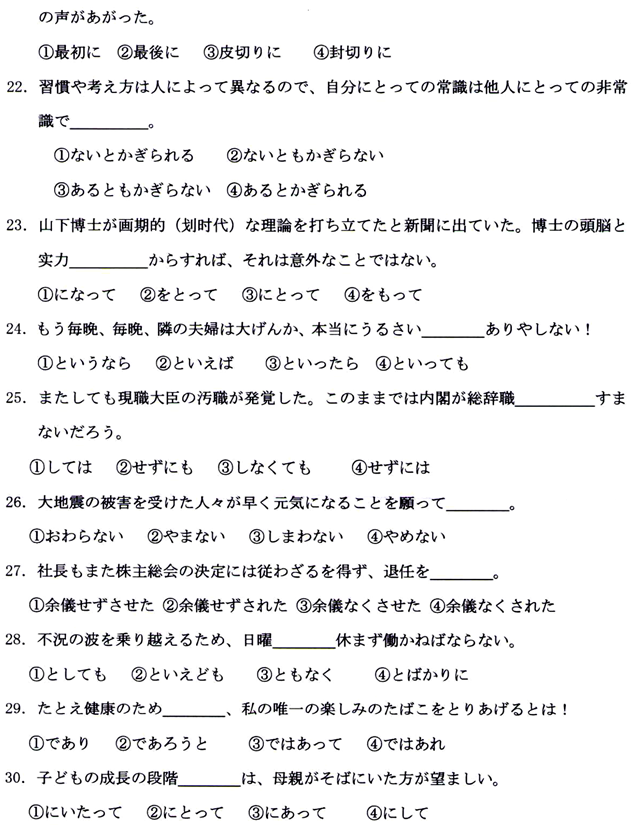 の声があがった。
①最初に ②最後に ③皮切りに ④封切りに
22. 習慣や考え方は人によって異なるので、自分にとっての常識は他人にとっての非常
識で________。
①ないとかぎられる ②ないともかぎらない
③あるともかぎらない ④あるとかぎられる
23. 山下博士が画期的（划时代）な理論を打ち立てたと新聞に出ていた。博士の頭脳と
実力________からすれば、それは意外なことではない。
①になって ②をとって ③にとって ④をもって
24. もう毎晩、毎晩、隣の夫婦は大げんか、本当にうるさい______ありやしない！
①というなら ②といえば ③といったら ④といっても
25. またしても現職大臣の汚職が発覚した。このままでは内閣が総辞職________すま
ないだろう。
①しては ②せずにも ③しなくても ④せずには
26. 大地震の被害を受けた人々が早く元気になることを願って______。
①おわらない ②やまない ③しまわない ④やめない
27. 社長もまた株主総会の決定には従わざるを得ず、退任を______。
①余儀せずさせた ②余儀せずされた ③余儀なくさせた ④余儀なくされた
28. 不況の波を乗り越えるため、日曜______休まず働かねばならない。
①としても ②といえども ③ともなく ④とばかりに
29. たとえ健康のため______、私の唯一の楽しみのたばこをとりあげるとは！
①であり ②であろうと ③ではあって ④ではあれ
30. 子どもの成長の段階______は、母親がそばにいた方が望ましい。
①にいたって ②にとって ③にあって ④にして